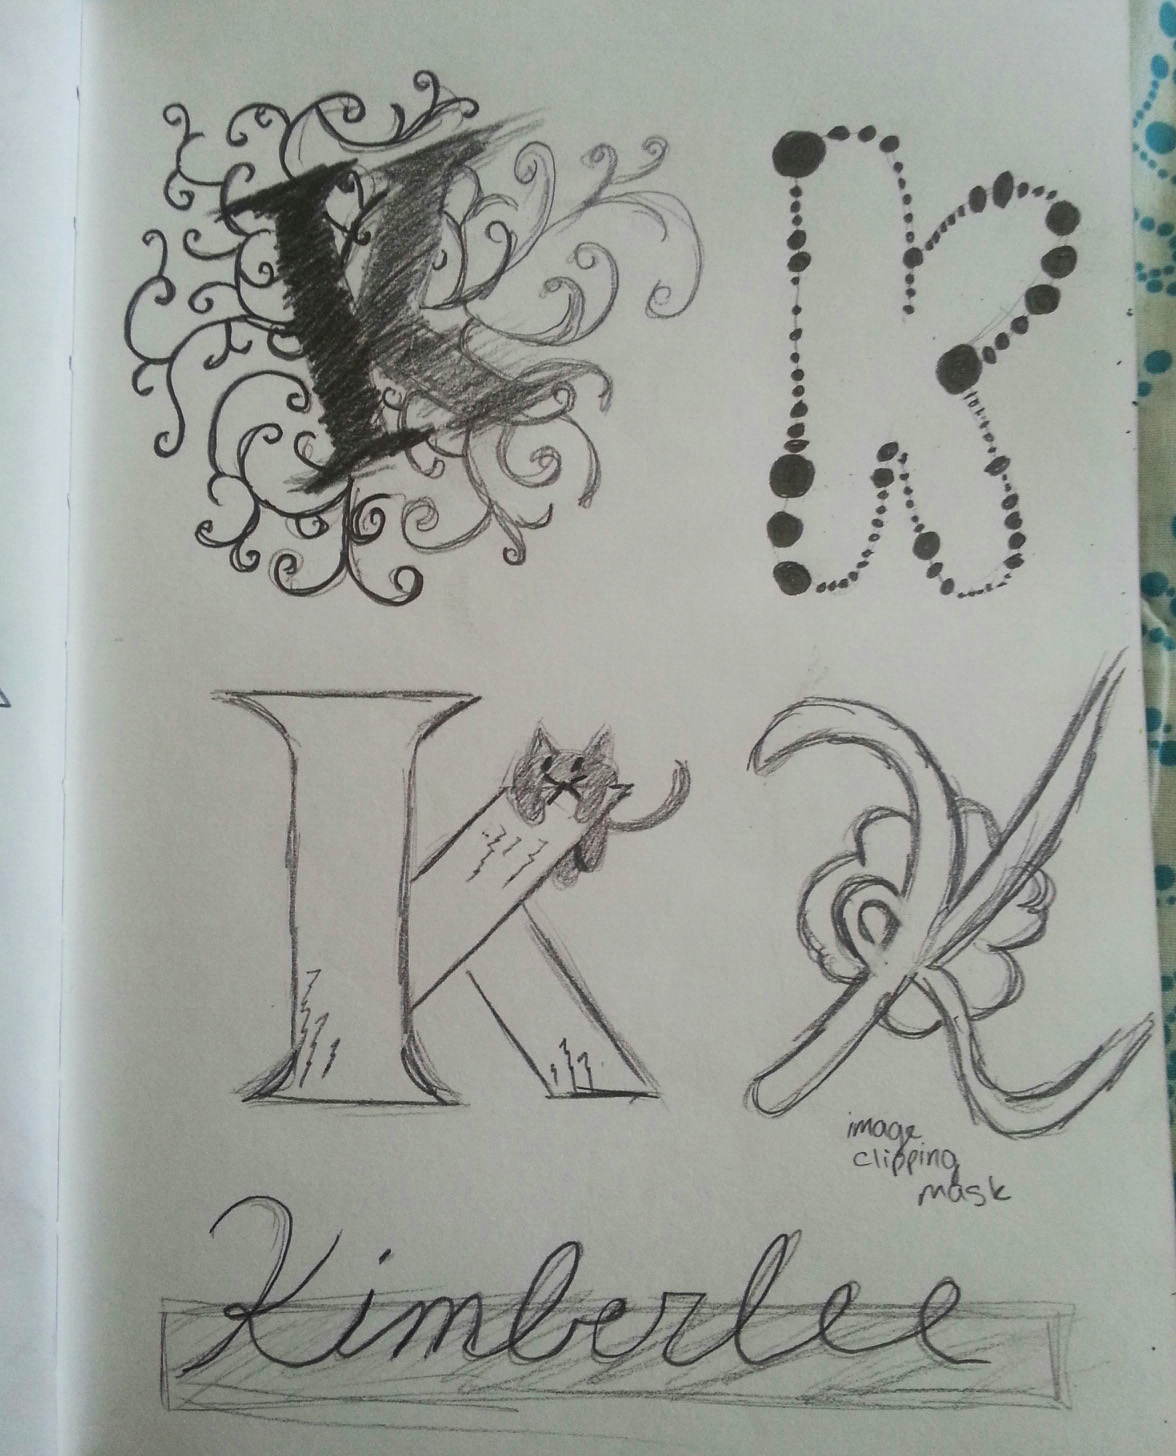 K K
K K
image
clipping
mask
Kimberlee